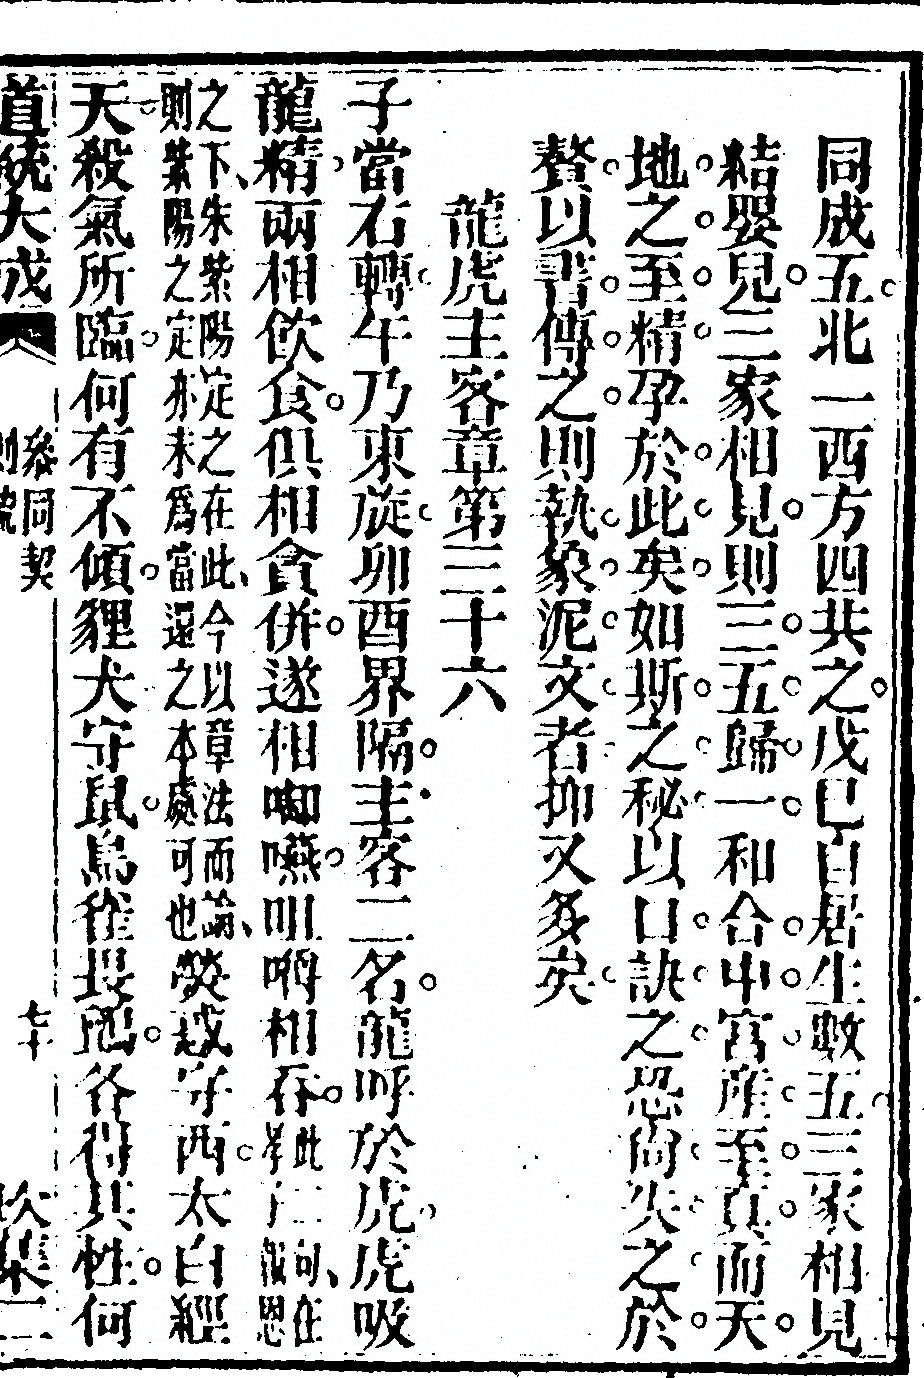 同成五北一西方四共之戊己自居生數五三家相見
結嬰兒三家相見則三五歸一和合中宮產至真而天
地之至精孕於此矣如斯之秘以口訣之恐尚失之於
贅以書傳之則執象泥文者抑又多矣
龍虎主客章第三十六
子當右轉午乃東旋卯酉界隔主客二名龍呼於虎虎吸
龍精兩相飲食俱相貪併遂相啣嚥咀嚼相吞此二句在
之下朱紫陽定之在此今以章法而論
則紫陽之定亦未爲當還之本處可也熒惑守西太白經
天殺氣所臨何有不傾貍犬守鼠鳥雀畏鴟各得其性何
道統大成 參同契 七十 坎集二